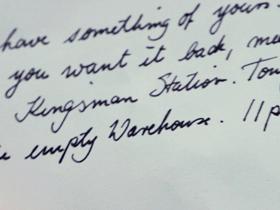 have something of yours.
you want it back, me
Kingsman Station. Ton
empty Warehouse. 11p